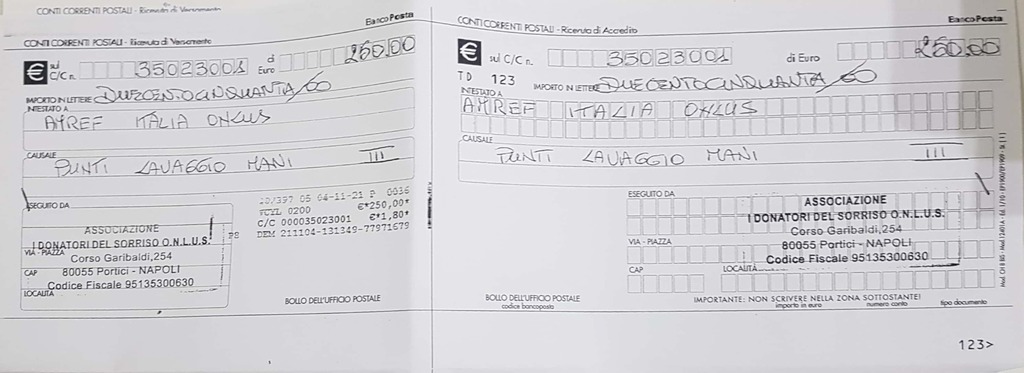 CONTI CORRENTI POSTALI - Ricevuta di Versamento
BancoPosta
CONTI CORRENTI POSTALI - Ricevuta di Versamento
€ sul C/C n. 35023001 di Euro 250,00
IMPORTO IN LETTERE DUECENTOCINQUANTA/00
INTESTATO A
AMREF ITALIA ONLUS
CAUSALE
PUNTI LAVAGGIO MANI III
ESEGUITO DA
ASSOCIAZIONE
I DONATORI DEL SORRISO O.N.L.U.S.
VIA - PIAZZA Corso Garibaldi,254
CAP 80055 Portici - NAPOLI
Codice Fiscale 95135300630
LOCALITÀ
05 04-11-21 P 0036
VCYL 0200 €*250,00*
C/C 000035023001 €*1,80*
DEM 211104-131349-77971679
BOLLO DELL'UFFICIO POSTALE
CONTI CORRENTI POSTALI - Ricevuta di Accredito
BancoPosta
€ sul C/C n. 35023001 di Euro 250,00
TD 123 IMPORTO IN LETTERE DUECENTOCINQUANTA/00
INTESTATO A
AMREF ITALIA ONLUS
CAUSALE
PUNTI LAVAGGIO MANI III
ESEGUITO DA
ASSOCIAZIONE
I DONATORI DEL SORRISO O.N.L.U.S.
VIA - PIAZZA Corso Garibaldi,254
80055 Portici - NAPOLI
CAP LOCALITÀ Codice Fiscale 95135300630
BOLLO DELL'UFFICIO POSTALE
codice bancoposta
IMPORTANTE: NON SCRIVERE NELLA ZONA SOTTOSTANTE!
importo in euro numero conto tipo documento
123>